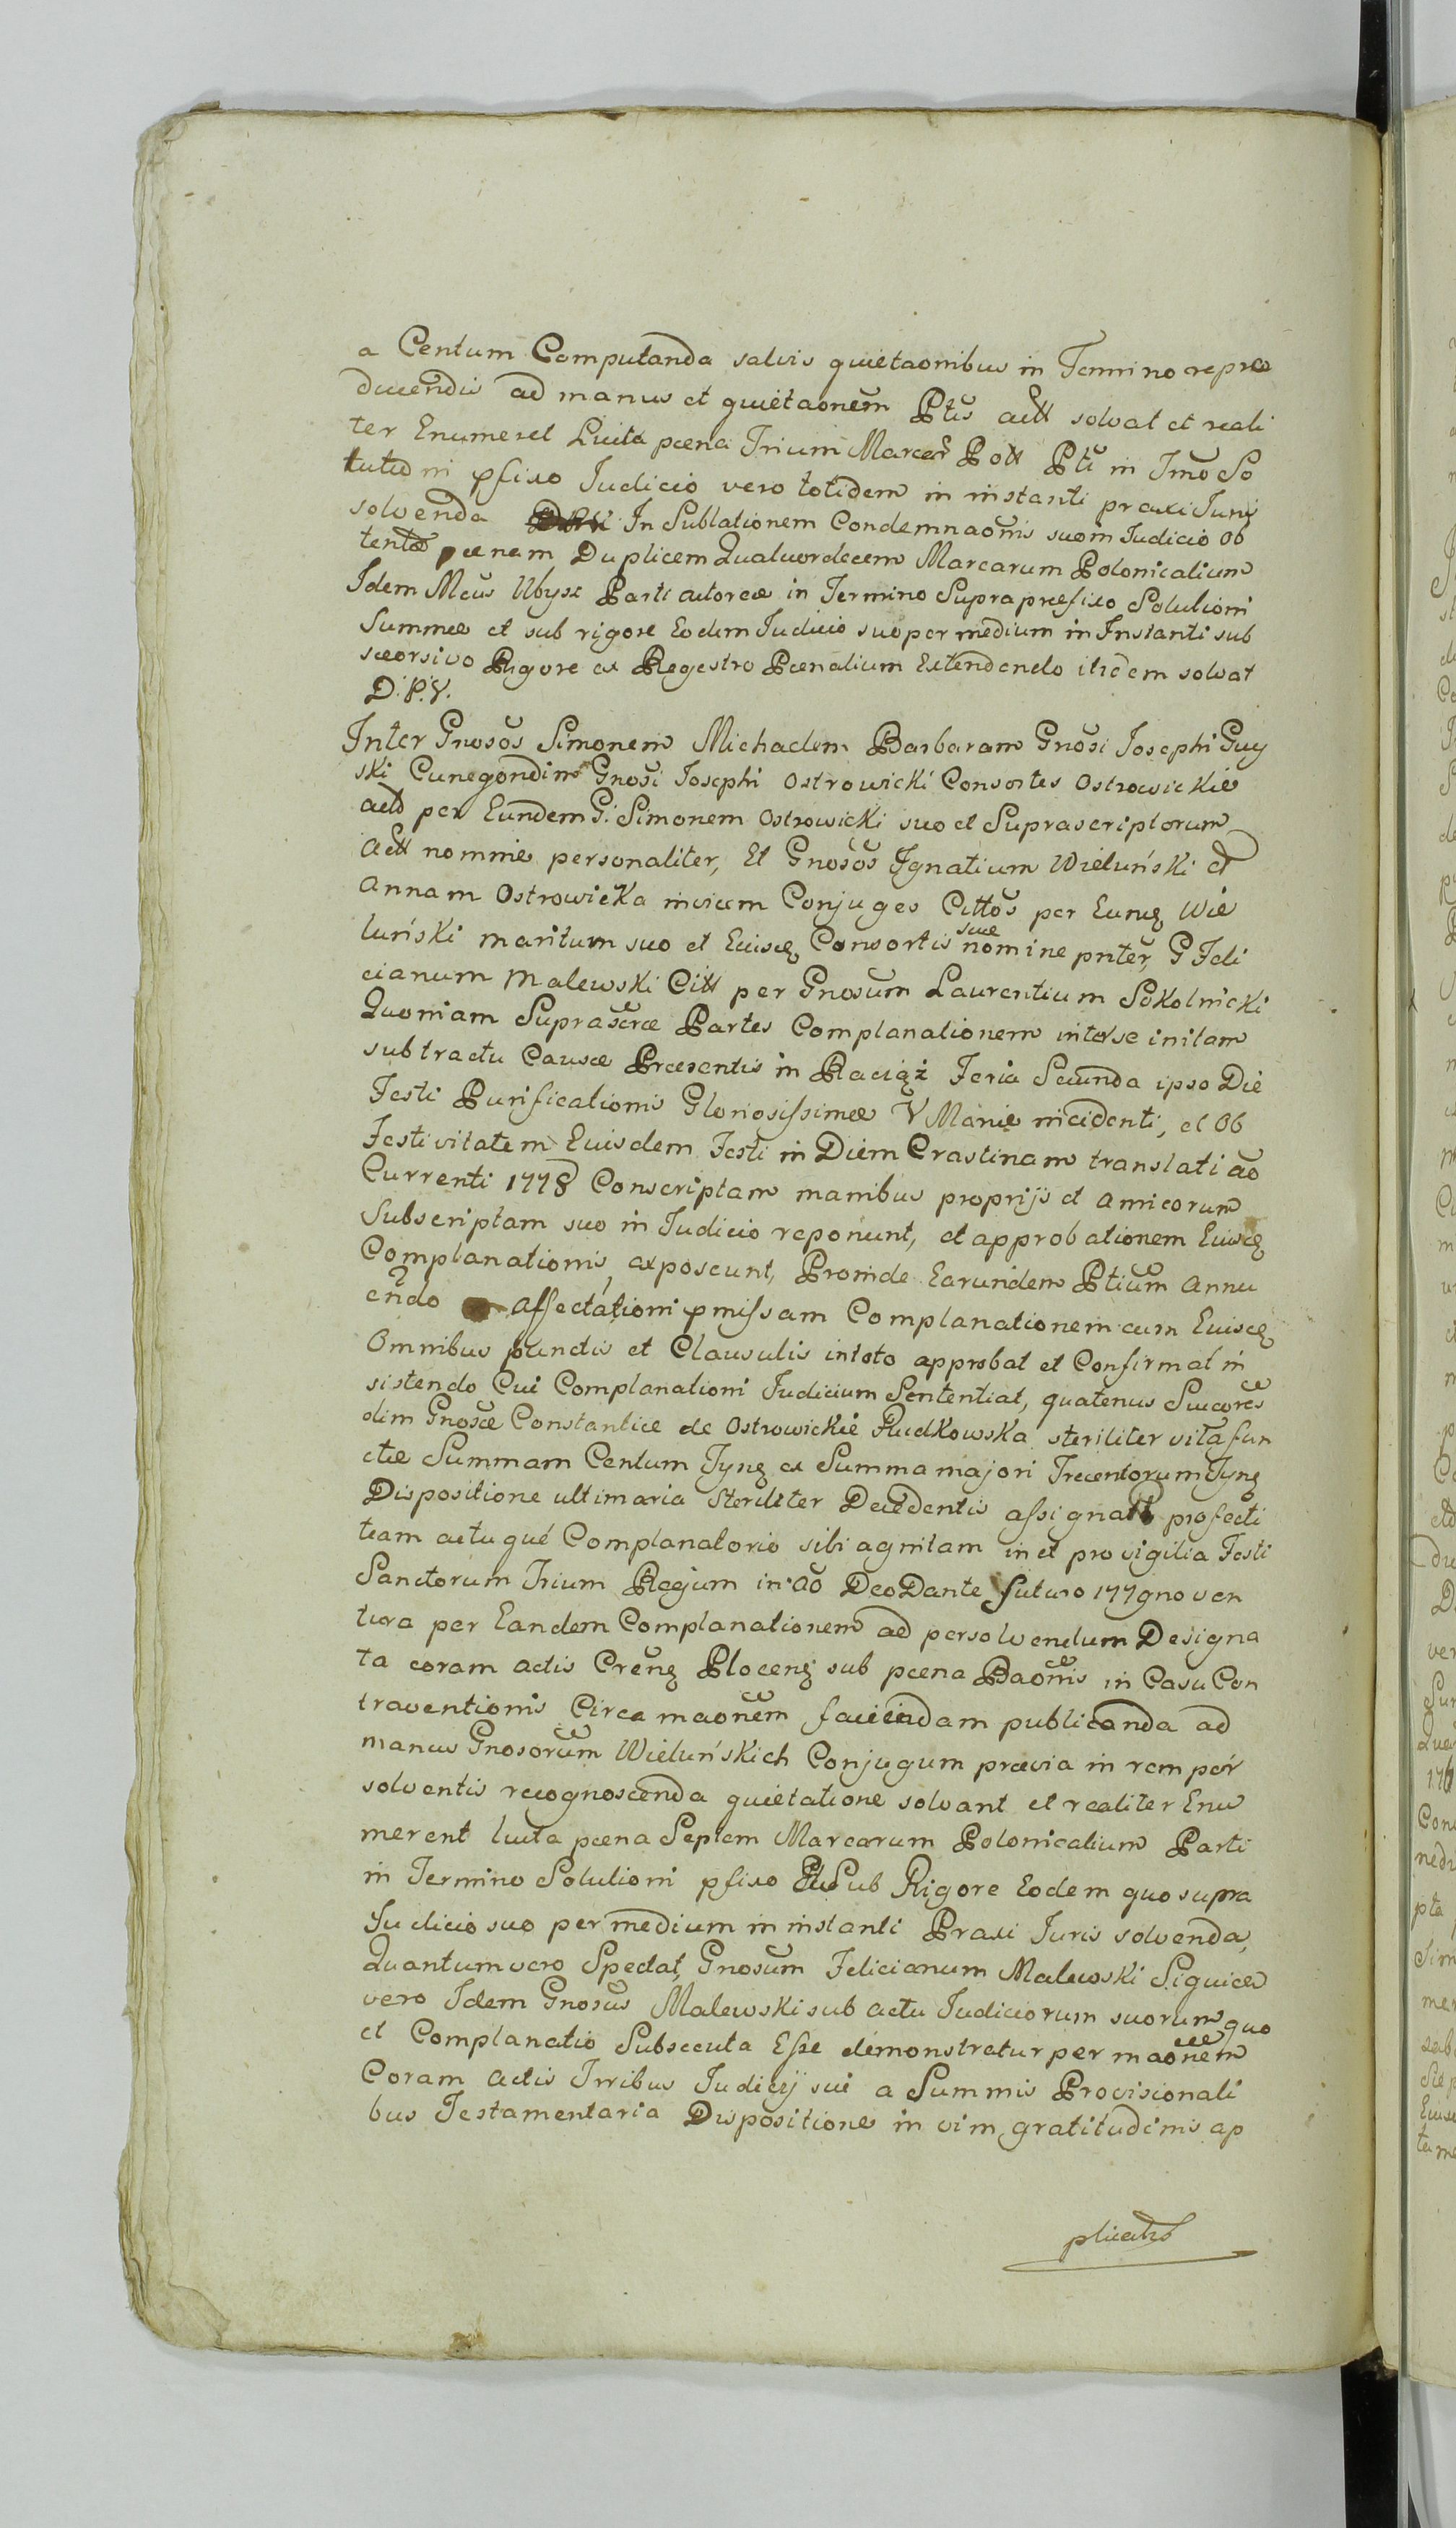 a Centum Computanda salvis quietaonibus in Termino repro
ducendis ad manus et quietaonem Ptis actt solvat et reali
ter Enumeret Luita pœna Trium Marcar Poll Pti in Tmo So
lutio ni pfixo Judicio vero totidem in instanti praxi Juris
solvenda In Sublationem Condemnaonis suom Judicio Ob
tentæ pœnam Duplicem Quatuordecem Marcarum Polonicalium
Idem Mcus Ubysz Parti actoreæ in Termino Supra præfixo Solutioni
Summæ et sub rigore Eodem Judicio suo per medium in Instanti sub
seorsivo Rigore ex Regestro Pœnalium Extendendo itidem solvat
D. P. V.
Inter Gnosos Simonem Michaelem Barbaram Gnosi Josephi Guy
ski Cunegondim Gnosi Josephi Ostrowicki Consortes Ostrowickie
act per Eundem G. Simonem Ostrowicki suo et Suprascriptorum
Actt nomine personaliter, Et Gnosos Ignatium Wieluński et
Annam Ostrowicka invicem Conjuges Cittos per Eunq Wie
luński maritum suo et Euisq Consortis suæ nomine pnter, G Feli
cianum Malewski Citt per Gnosum Laurentium Sokolnicki
Quoniam Suprascræ Partes Complanationem inter se initam
sub tractu Causæ Præsentis in Raciąż Feria Secunda ipso Die
Festi Purificationis Gloriosissimæ V Mariæ incidenti, et Ob
Festivitatem Euisdem Festi in Diem Crastinam translati ao
Currenti 1778 Conscriptam manibus proprijs et amicorum
Subscriptam suo in Judicio reponunt, et approbationem Euisq
Complanationis, exposcunt, Proinde Earundem Ptium annu
endo affectationi pmissam Complanationem cum Euisq
Omnibus punctis et Clausulis in toto approbat et Confirmat in
sistendo Cui Complanationi Judicium Sententiat, quatenus Succores
olim Gnosæ Constantiæ de Ostrowickie Rudkowska steriliter vita fun
ctæ Summam Centum Tynq ex Summa majori Trecentorum Tynq
Dispositione ultimaria Steriliter Decedentis assignatt profecti
team actu que Complanatorio sibi agnitam in et pro vigilia Festi
Sanctorum Trium Regum in ao Deo Dante futuro 1779no ven
tura per Eandem Complanationem ad persolvendum Designa
ta coram actis Crenq Plocenq sub pœna Baonis in Casu Con
traventionis Circa maonem faciendam publicanda ad
manus Gnosorum Wieluńskich Conjugum prævia in rem per
solventis recognoscenda quietatione solvant et realiter Enu
merent luita pœna Septem Marcarum Polonicalium Parti
in Termino Solutioni pfixo Et Sub Rigore Eodem quo supra
Judicio suo per medium in instanti Praxi Juris solvenda,
Quantum vero Spectat, Gnosum Felicianum Malewski Siquidem
vero Idem Gnosus Malewski sub actu Judiciorum suorum quo
et Complanatio Subsecuta Esse demonstratur per maonem
Coram Actis Trribus Judicij sui a Summis Provisionali
bus Testamentaria Dispositione in vim gratitudinis ap
plicatis